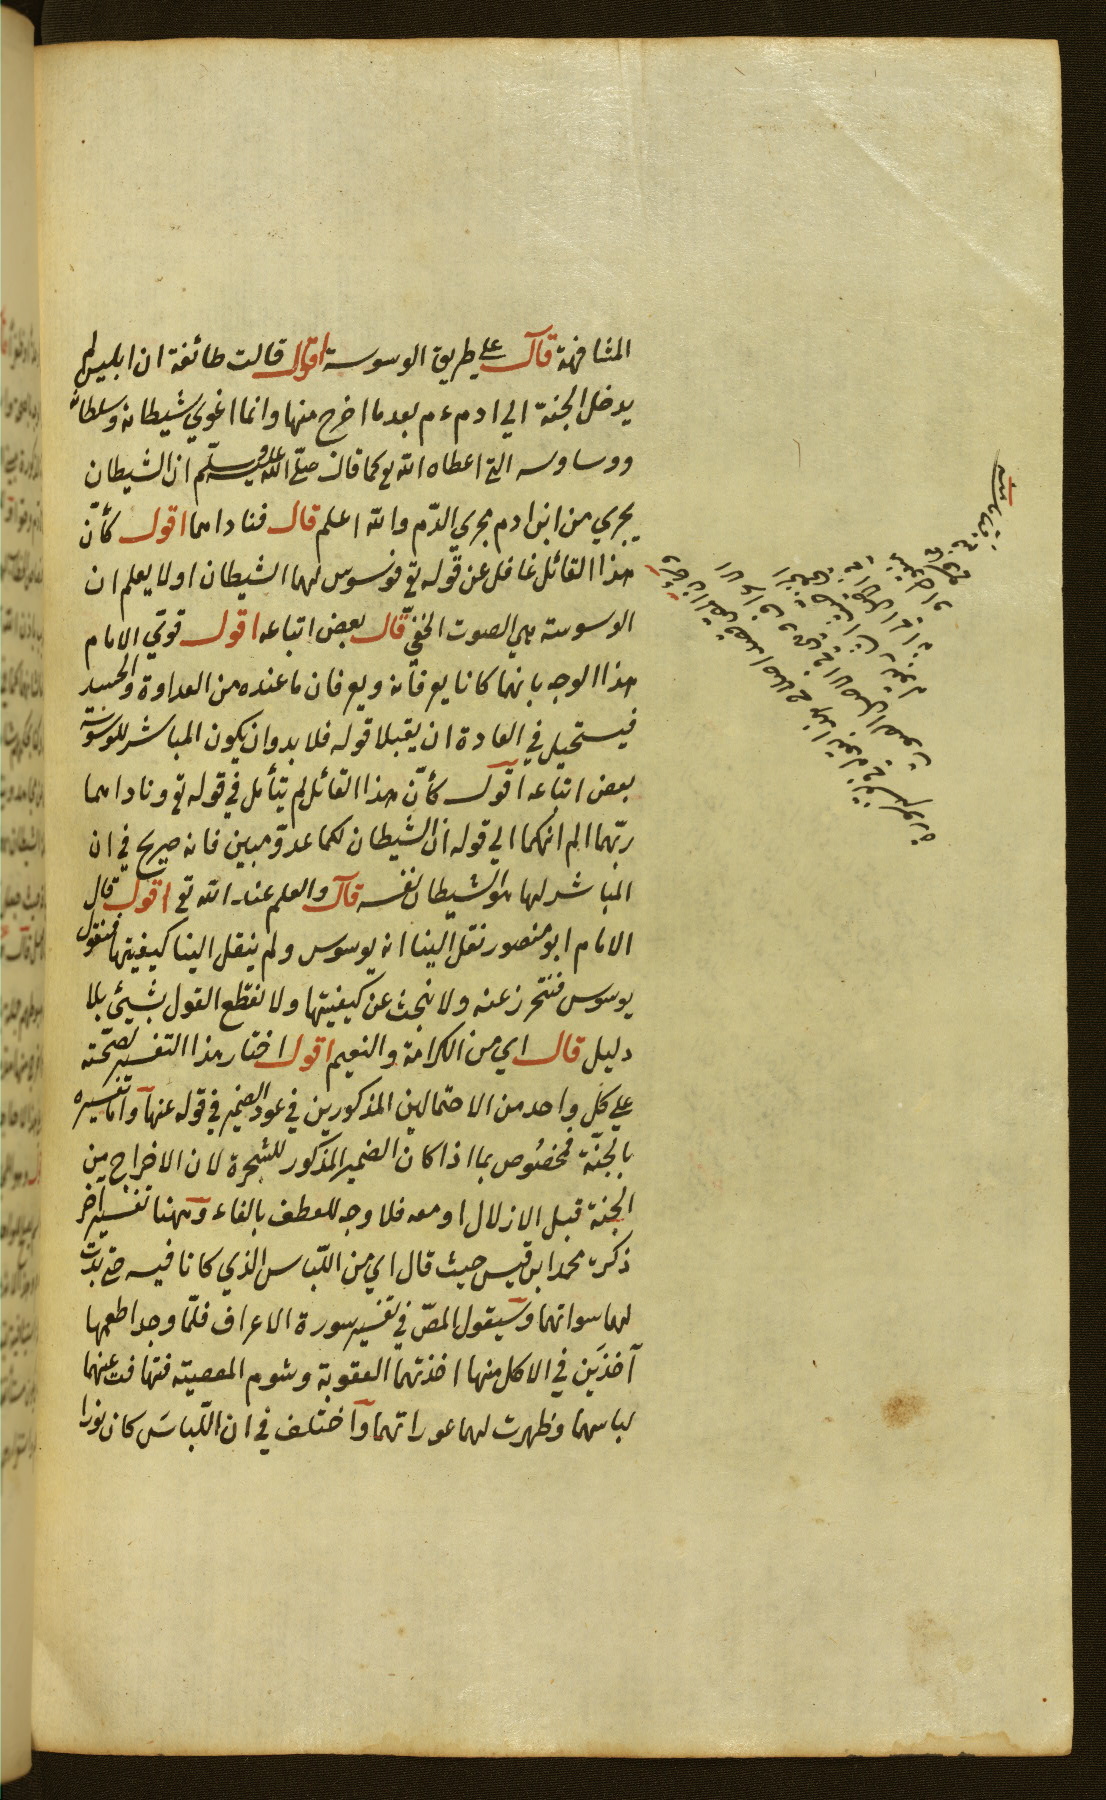 المشافهة قال على طريق الوسوسة اقول قالت طائفة ان ابليس لم
يدخل الجنة الي ادم ءم بعد ما اخرج منها وانما اغوي شيطانه وسلطانه
ووساوسه التي اعطاه الله تع كما قال صلّى اللّه عليه وسلّم ان الشيطان
يجري من ابن ادم مجري الدّم والله اعلم قال فناداهما اقول كأنّ
هذا القائل غافل عن قوله تع فوسوس لهما الشيطان اولا يعلم ان
الوسوسة هي الصوت الخفيّ قال بعض اتباعه اقول قوّي الامام
هذا الوجه بانهما كانا يعرفانه ويعرفان ما عنده من العداوة والحسد
فيستحيل في العادة ان يقبلا قوله فلا بد وان يكون المباشر للوسوسة
بعض اتباعه اقول كأنّ هذا القائل لم يتأمل في قوله تع وناداهما
ربّهما الم انهكما الي قوله ان الشّيطان لكما عدوّ مبين فانه صريح في ان
المباشر لهما هو الشيطان نفسه قال والعلم عند الله تع اقول قال
الامام ابو منصور نقل الينا انه يوسوس ولم ينقل الينا كيفيتها فنقول
يوسوس فنتحرز عنه ولا نبحث عن كيفيتها ولا نقطع القول بشيئ بلا
دليل قال اي من الكرامة والنعيم اقول اختار هذا التفسير لصحّته
علي كلّ واحد من الاحتمالين المذكورين في عود الضمير في قوله عنها وامّا تفسيره
بالجنّة فمخصُوص بما اذا كان الضمير المذكور للشجرة لان الاخراج من
الجنة قبل الازلال او معه فلا وجه للعطف بالفاء وههنا تفسير اخر
ذكره محمد ابن قيس حيث قال اي من اللّباس الذي كانا فيه حتى بدت
لهما سواتهما وسيقول المصّ في تفسير سورة الاعراف فلمّا وجدا طعمها
آخذَين في الاكل منها اخذتهما العقوبة وشوم المعصيته فتهافت عنهما
لباسهما وظهرت لهما عوراتهما وآختلف في ان اللّباسَ كان نورا